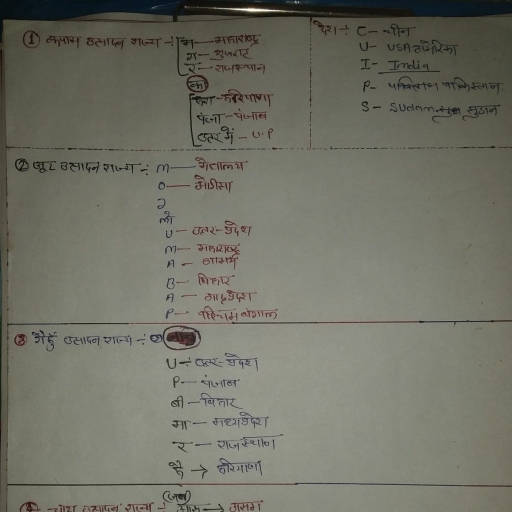 ① कपास उत्पादन राज्य ÷ म — महाराष्ट्र
ग — गुजरात
र — राजस्थान
का
हरा — हरियाणा
पंजा — पंजाब
उत्तर में — U.P
देश ÷ C — चीन
U — USA अमेरिका
I — India
P — पाकिस्तान
S — Sudan सूडान
② जूट उत्पादन राज्य ÷ m — मेघालय
O — ओडीसा
U — उत्तर-प्रदेश
m — महाराष्ट्र
A — आसाम
B — बिहार
A — आन्ध्रप्रदेश
P — पश्चिम बंगाल
③ गेहूँ उत्पादन राज्य ÷
U ÷ उत्तर-प्रदेश
P — पंजाब
बी — बिहार
मा — मध्यप्रदेश
र — राजस्थान
है → हरियाणा
④ चाय उत्पादन राज्य ÷ → असम